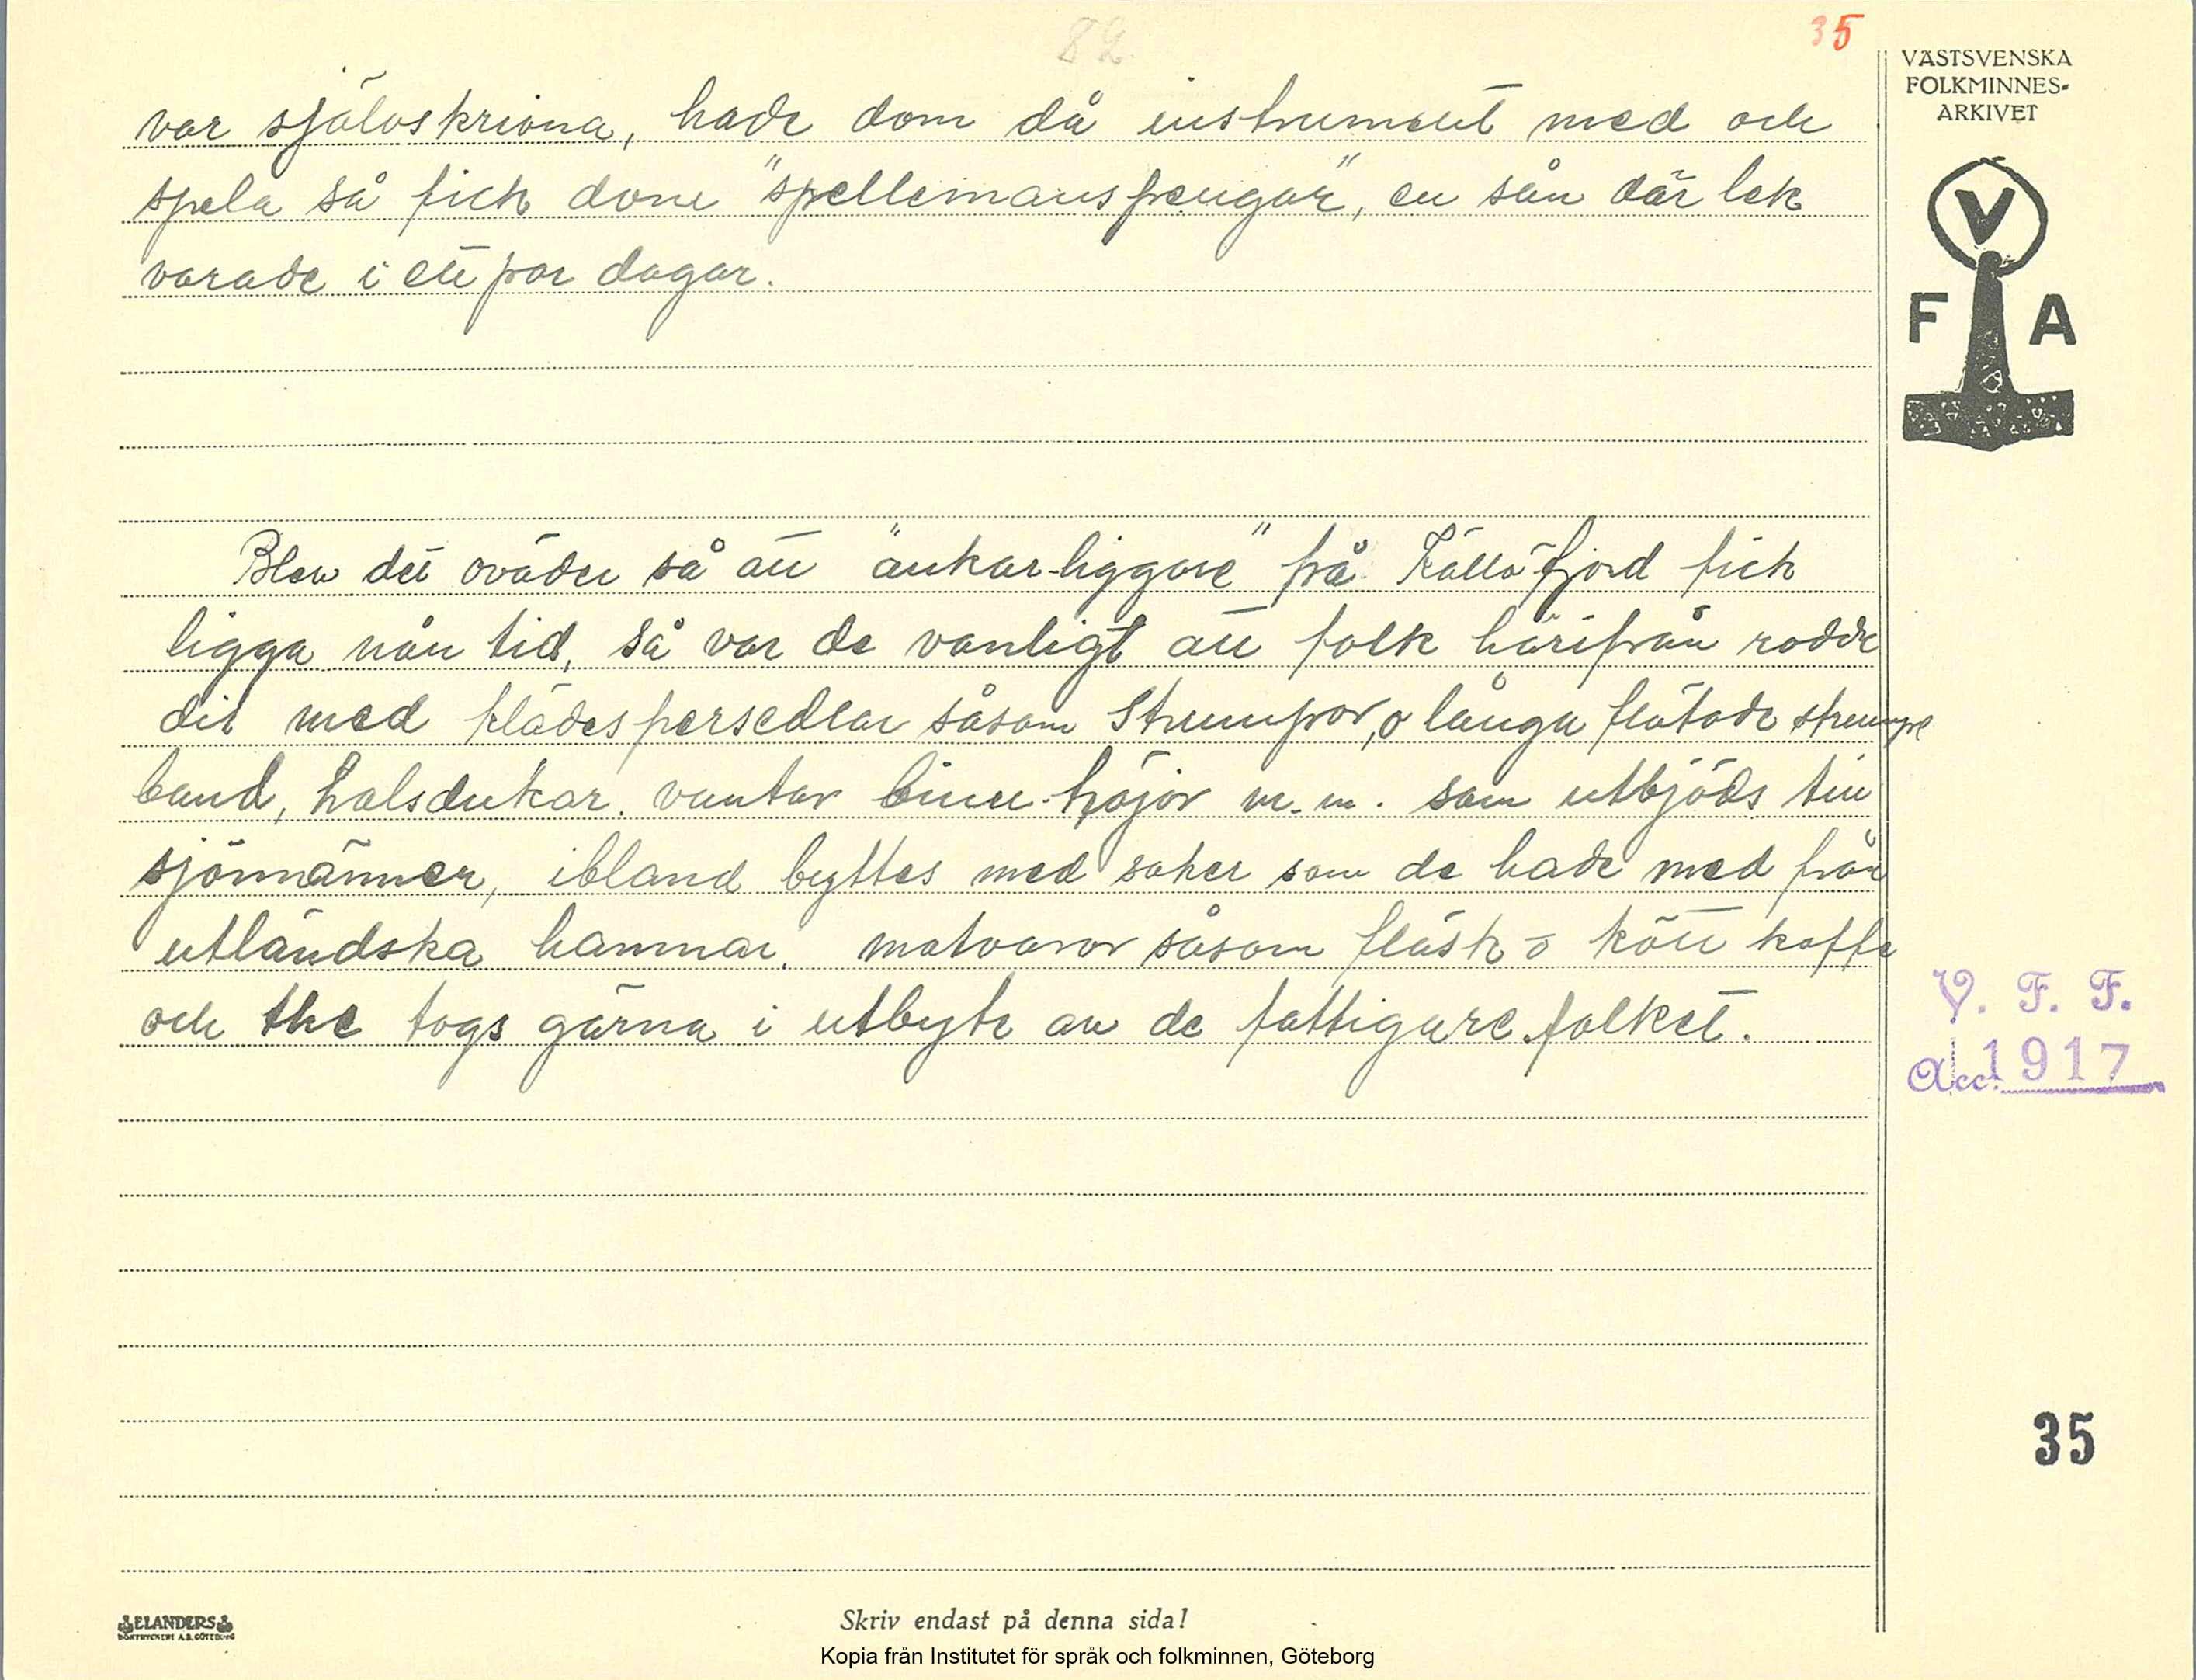 82.
35
VÄSTSVENSKA
FOLKMINNES-
ARKIVET
V
F A
var självskrivna, hade dom då instrument med och
spela så fick dom "spellemanspengar", en sån där lek
varade i ett par dagar.
Blev det oväder så att "ankar-liggare" på Källöfjord fick
ligga nån tid, så var de vanligt att folk härifrån rodde
dit med klädespersedlar såsom strumpor, o långa flätade strumpe
band, halsdukar. vantar m.m. som utbjöds till
sjömänner, ibland byttes med saker som de hade med från
utländska hamnar. matvaror såsom fläsk o kött kaffe
och the togs gärna i utbyte av de fattigare folket.
V. F. F.
Acc. 1917
35
ELANDERS
BOKTRYCKERI A.B. GÖTEBORG
Skriv endast på denna sida!
Kopia från Institutet för språk och folkminnen, Göteborg